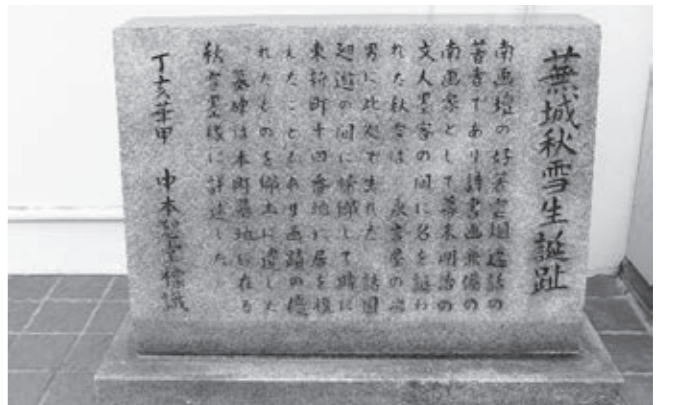 蕪城秋雪生誕趾
南画壇の好著雲烟遺話の
著者であり詩書画兼備の
南画家として幕末明治の
文人墨客の間に名を謳わ
れた秋雪は の次
男に此処で生れた 諸国
廻遊の間に帰郷して時に
東新町十四番地に居を構
えたこともあり画蹟の優
れたものを郷土に遺した
墓碑は本町墓地に在る
秋雪墨後に詳述した
丁亥華甲 中本 識